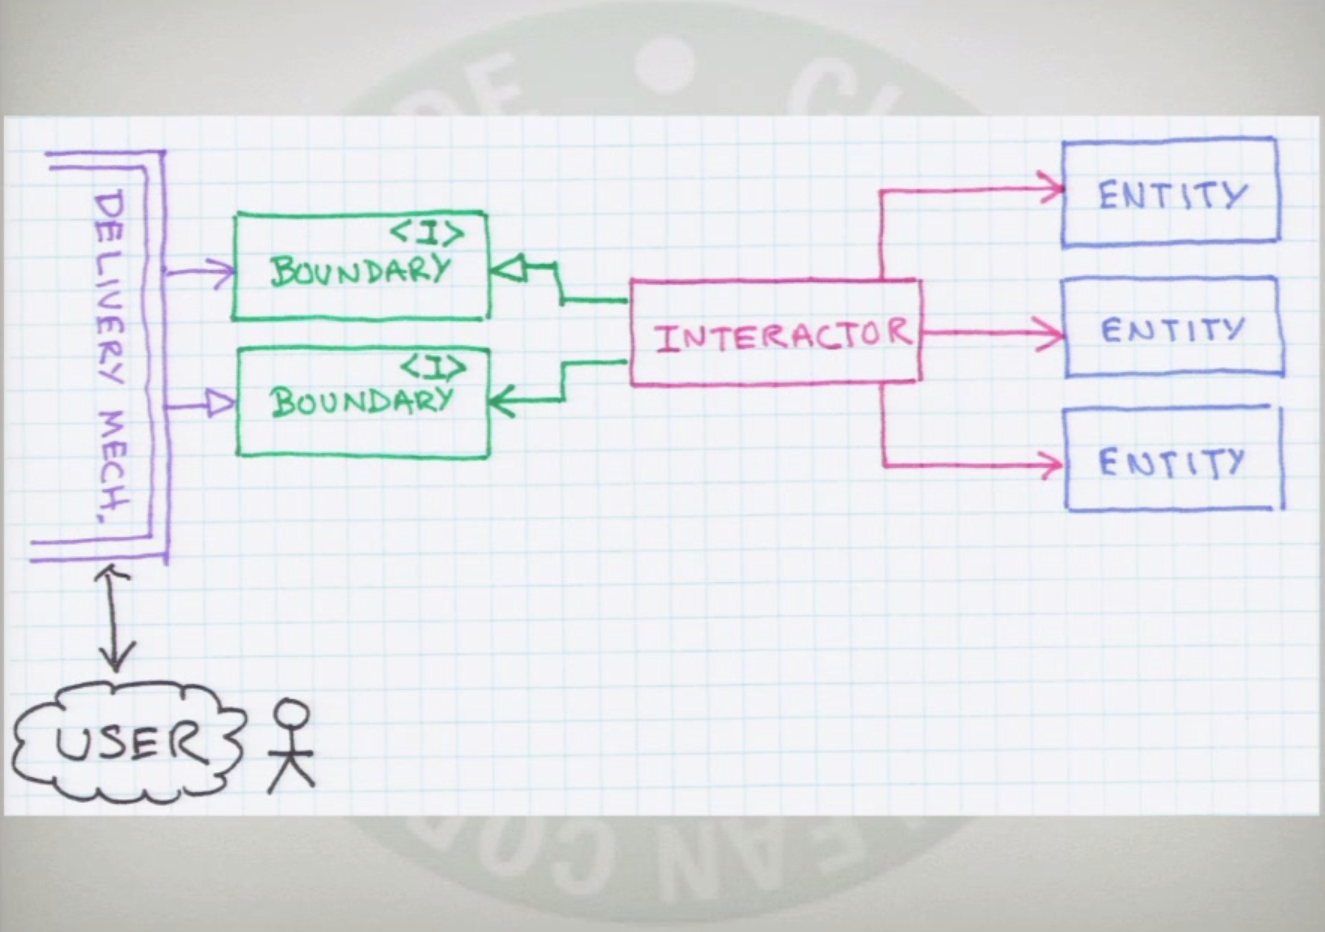 DELIVERY MECH.
<I>
BOUNDARY
<I>
BOUNDARY
INTERACTOR
ENTITY
ENTITY
ENTITY
USER